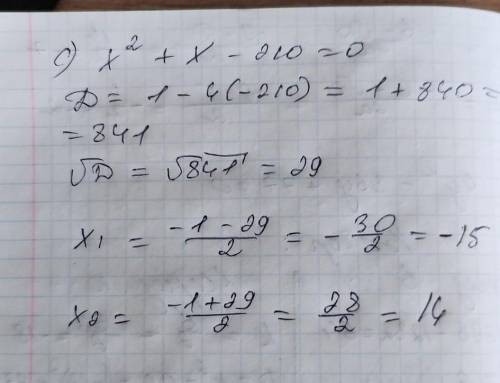 c) x² + x - 210 = 0
D = 1 - 4(-210) = 1 + 840 =
= 841
√D = √841 = 29
x₁ = (-1 - 29)/2 = - 30/2 = -15
x₂ = (-1 + 29)/2 = 28/2 = 14